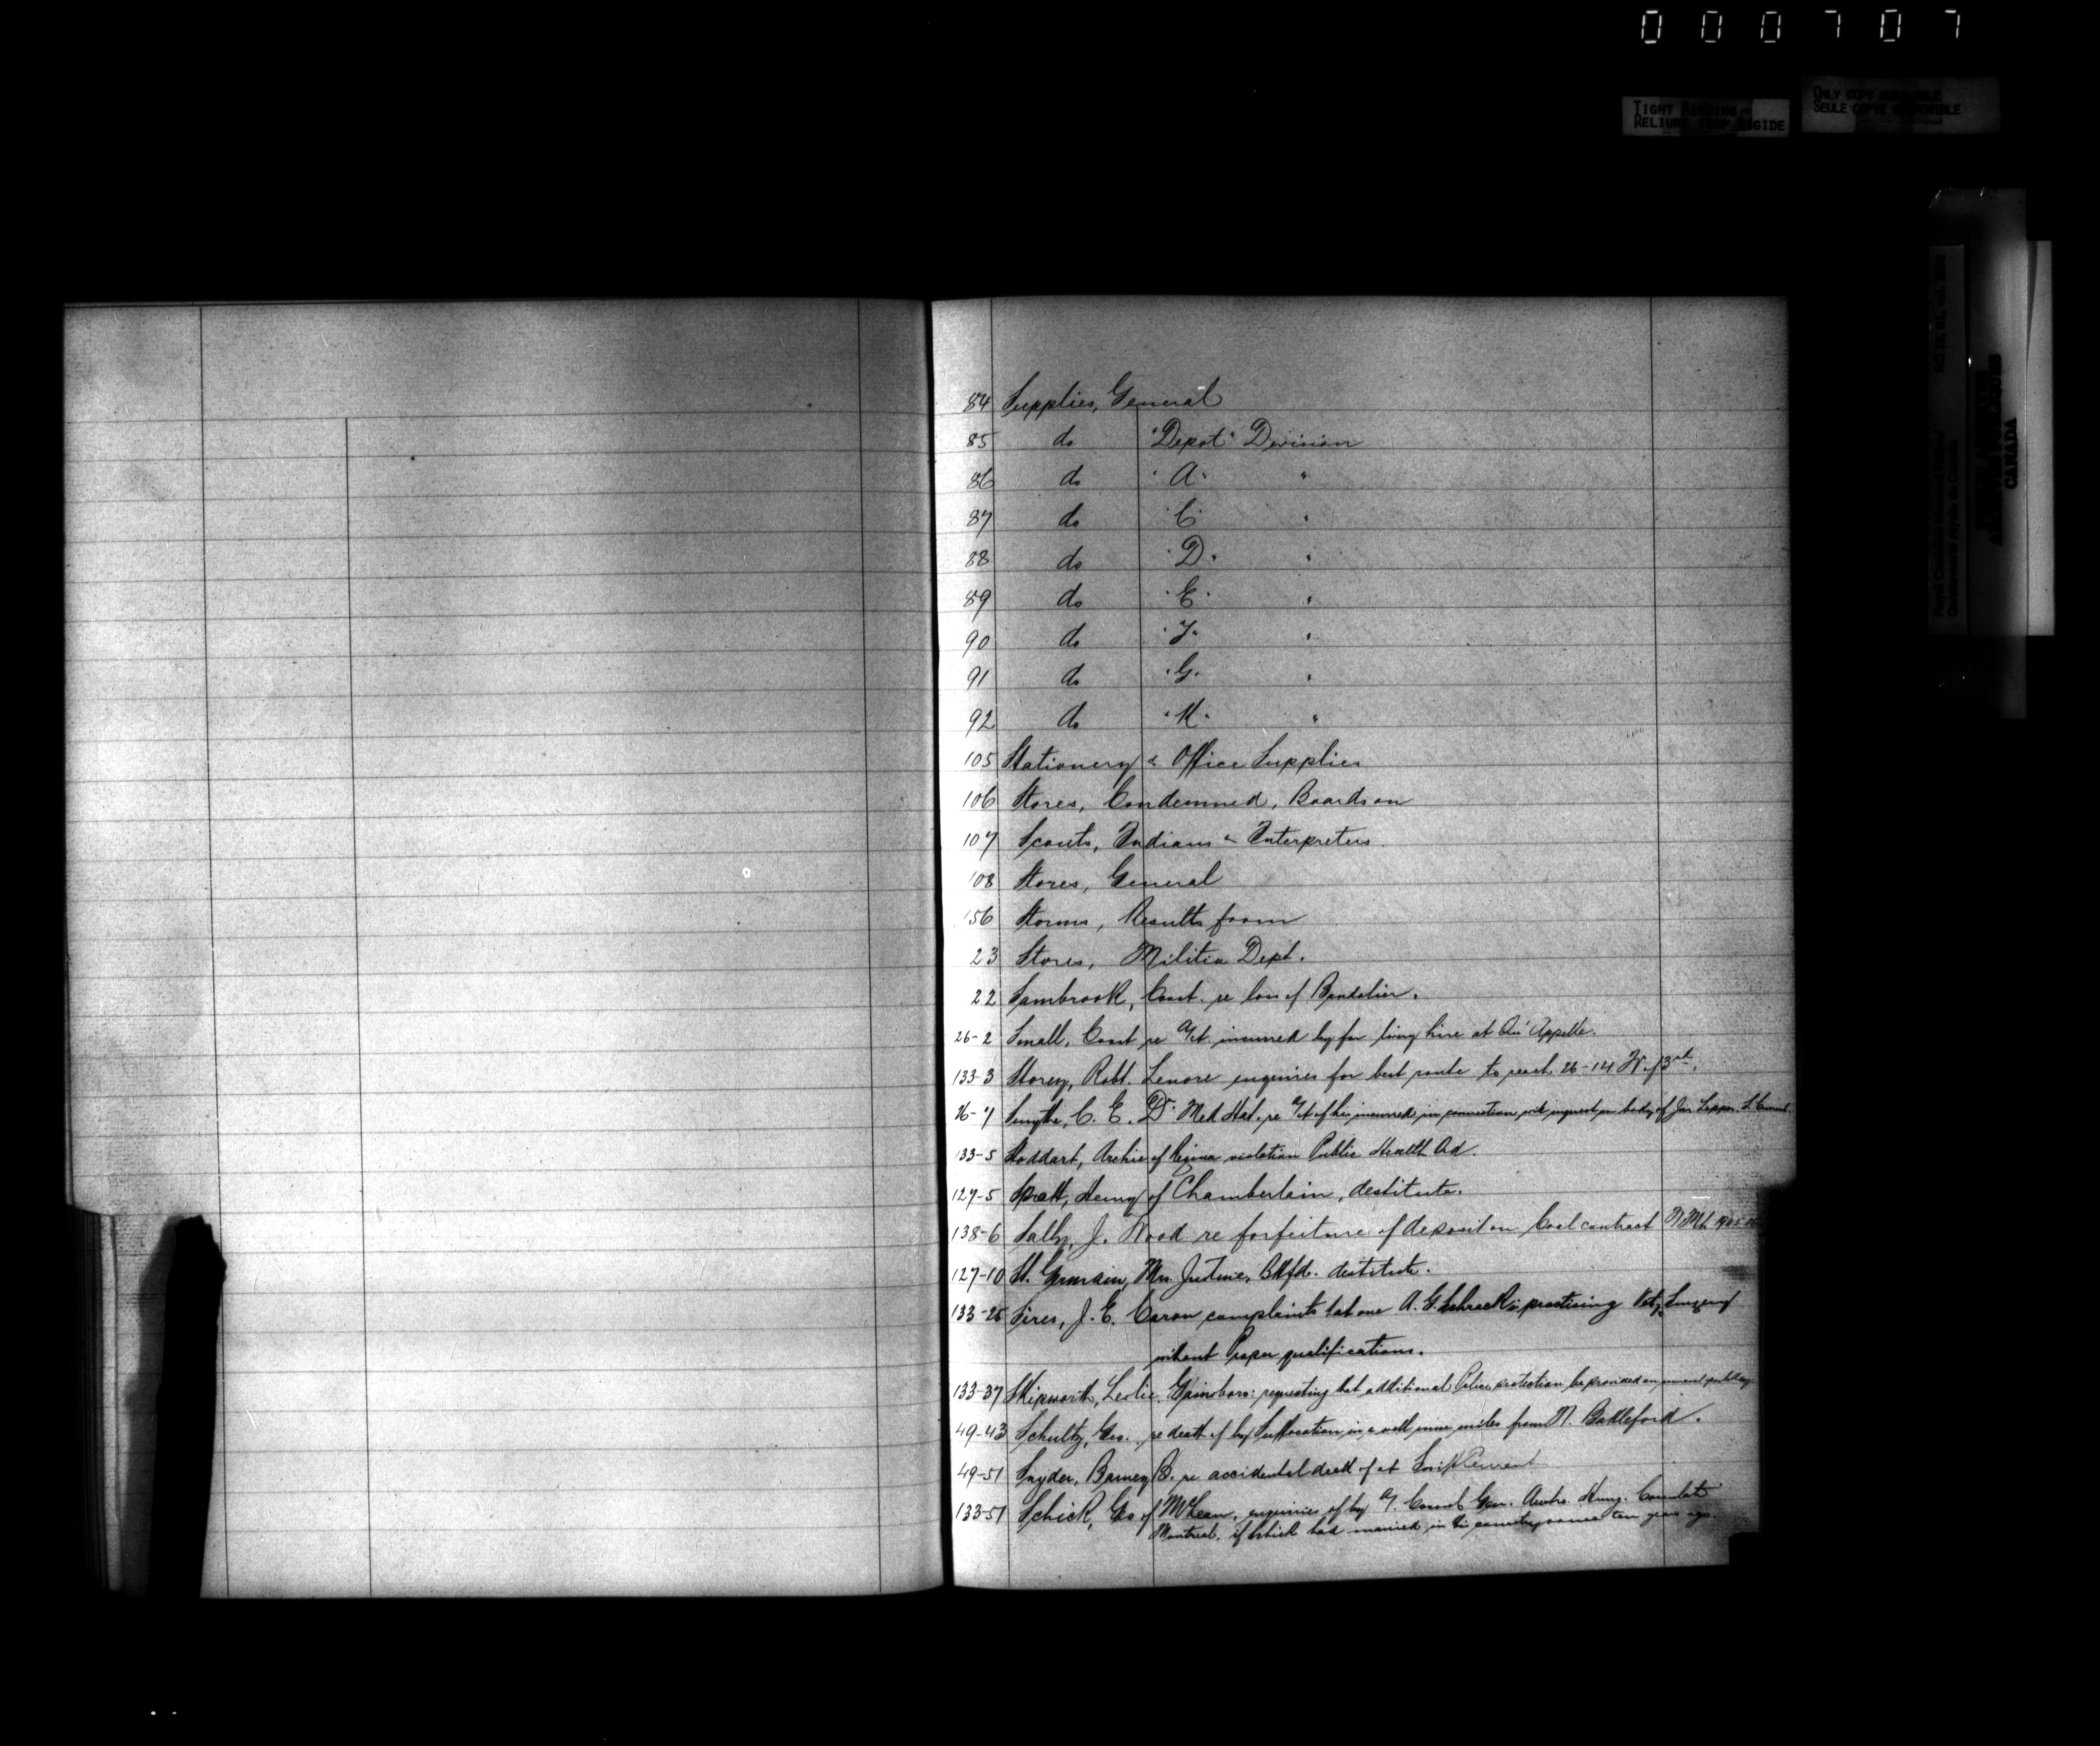 000707
TIGHT BINDING
RELIURE TROP RIGIDE
ONLY COPY AVAILABLE
SEULE COPIE DISPONIBLE
CANADA
84 Supplies, General
85 do "Depot" Division
86 do "A" "
87 do "C" "
88 do "D" "
89 do "E" "
90 do "F" "
91 do "G" "
92 do "K" "
105 Stationery & Office Supplies
106 Stores, Condemned, Boards on
107 Scouts, Indians & Interpreters
108 Stores, General
156 Storms, Results from
23 Stores, Militia Dept.
22 Sambrook, Const. re loss of Bandolier.
26-2 Small, Const re a/ct. incurred by for livery hire at Qu'Appelle.
133-3 Storey, Robt. Lenore enquires for best route to reach 26-14 W. of 3rd.
26-7 Smythe, C. E. Dr. Med Hat. re a/ct of his incurred in connection with inquest on body of Jas.
133-5 Stoddart, Archie of Regina violation Public Health Act.
127-5 Spratt, Henry of Chamberlain, destitute.
138-6 J. Wood re forfeiture of deposit on Coal contract
127-10 St. Germain, Mrs. Justine, Btlfd. destitute.
133-25 Sires, J. E. Caron complaints that one A. G. Schrack is practising Vety. Surgery
without Proper qualifications.
133-37 Skipworth, Leslie, Gainsboro: requesting that additional Police protection be provided on
49-43 Schultz, Geo. re death of by Suffocation in a well nine miles from N. Battleford.
49-51 Snyder, Barney B. re accidental death of at Swift Current
133-51 Schick, Geo of McLean, enquiries of by A/. Consul Gen. Austro. Hung. Consulate
Montreal, if Schick had married in this country some ten years ago.